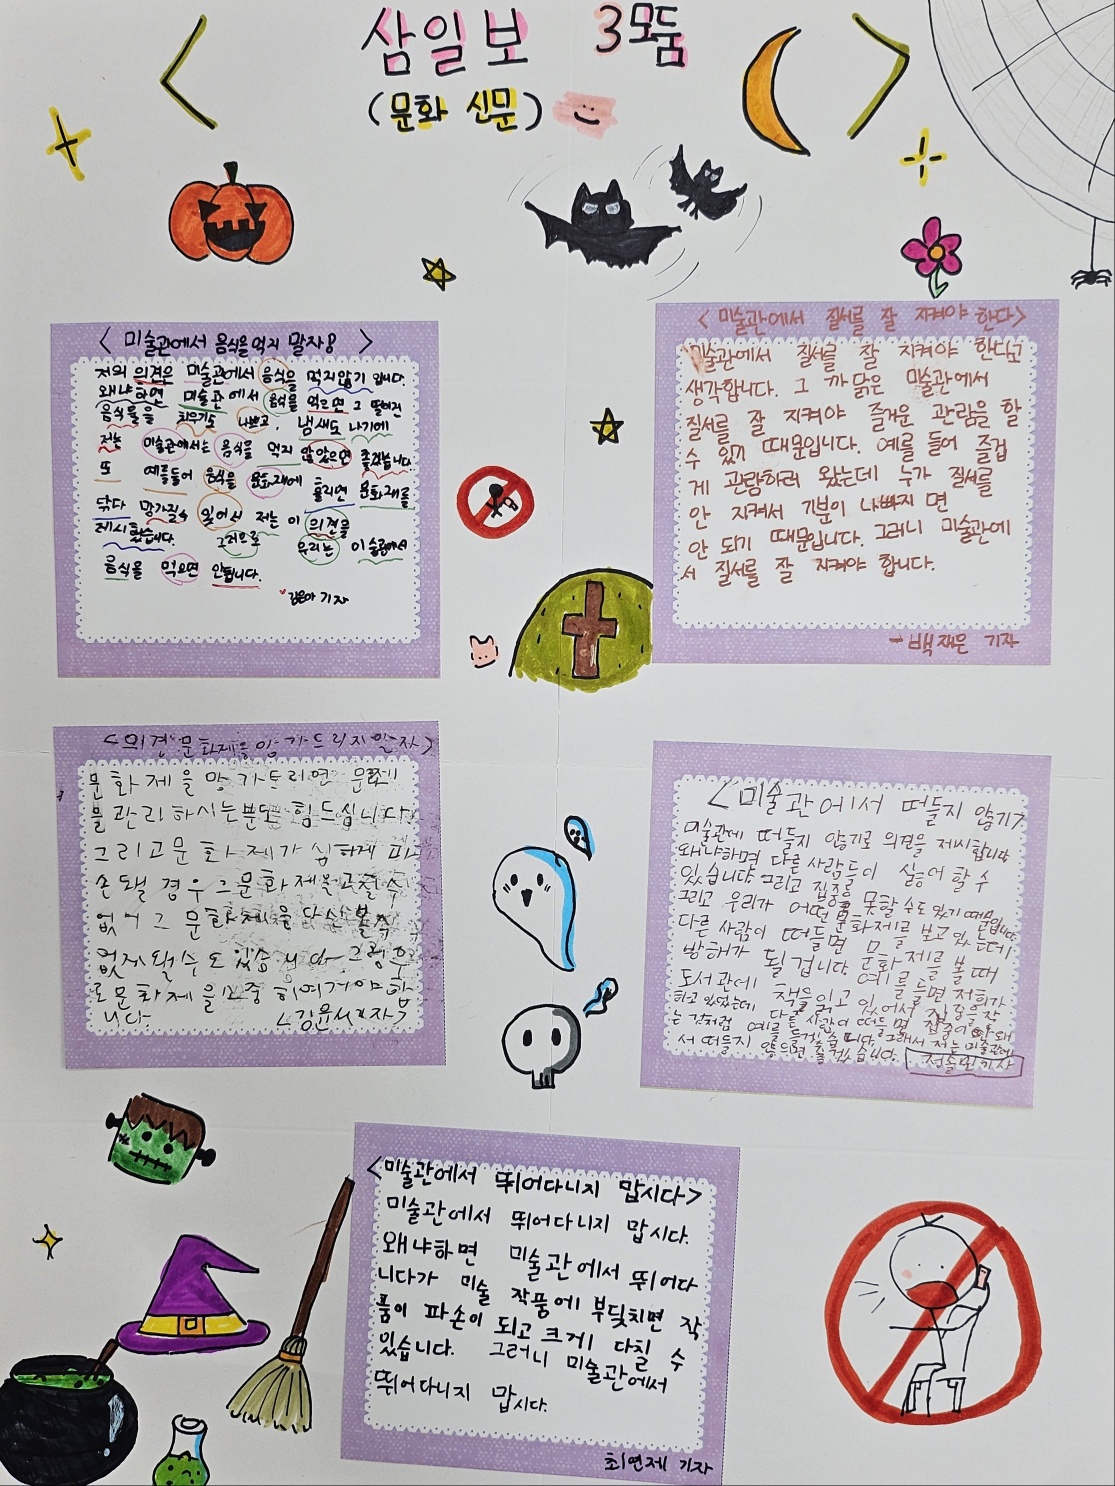 삼일보 3모둠
(문화 신문)
<미술관에서 음식을 먹지 말자!>
저의 의견은 미술관에서 음식을 먹지않기 입니다.
왜냐하면 미술관에서 음식을 먹으면 그 떨어진
음식물을 치우기도 나쁘고, 냄새도 나기에
저는 미술관에서는 음식을 먹지 않았으면 좋겠습니다
또 예를들어 음식을 문화재에 흘리면 문화재를
닦다 망가질수 있어서 저는 이 의견을
제시했습니다. 그러므로 우리는 이술관에서
음식을 먹으면 안됩니다.
기자
<미술관에서 질서를 잘 지켜야 한다>
미술관에서 질서를 잘 지켜야 한다고
생각합니다. 그 까닭은 미술관에서
질서를 잘 지켜야 즐거운 관람을 할
수 있기 때문입니다. 예를 들어 즐겁
게 관람하러 왔는데 누가 질서를
안 지켜서 기분이 나빠지 면
안 되기 때문입니다. 그러니 미술관에
서 질서를 잘 지켜야 합니다.
-백재은 기자
<의견 문화제을 망가드리지말자>
문화제을 망가드리면 문화제
를 관리하시는분도 힘드십니다
그리고문화제가 심하게 파
손될 경우 그문화제를고칠수
없어그 문화제을다신볼수
없게될수도있습니다. 그럼으
로문화제을소중히여겨야합
니다. <김윤서기자>
<미술관에서 떠들지 않기>
미술관에 떠들지 않기로 의견을 제시합니다
왜냐하면 다른 사람들이 싫어 할 수
있습니다. 그리고 집중을 못할 수도 있기 때문입니다
그리고 우리가 어떤 문화제를 보고 있는데
다른 사람이 떠들면 문화제를 볼 때
방해가 될 겁니다. 예를 들면 저희가
도서관에 책을 읽고 있어서 집중을 잘
하고 있었는데 다른 사람이 떠들면 집중이 안 돼
는 것처럼 예를 들겠습니다. 그래서 저는 미술관에
서 떠들지 않으면 좋겠습니다. 기자
<미술관에서 뛰어다니지 맙시다>
미술관에서 뛰어다니지 맙시다.
왜냐하면 미술관에서 뛰어다
니다가 미술 작품에 부딪치면 작
품이 파손이 되고 크게 다칠 수
있습니다. 그러니 미술관에서
뛰어다니지 맙시다.
최연제 기자